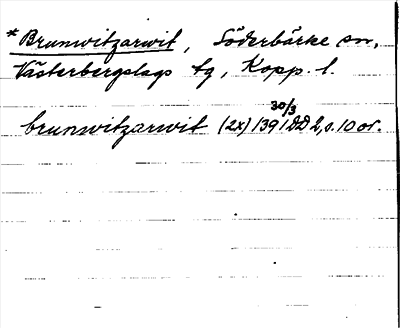 * Brunwitzarwit, Söderbärke sn,
Västerbergslags tg, Kopp. l.
30/3
brunwitzarwit (2x) 1391 DD 2, s. 10 or.